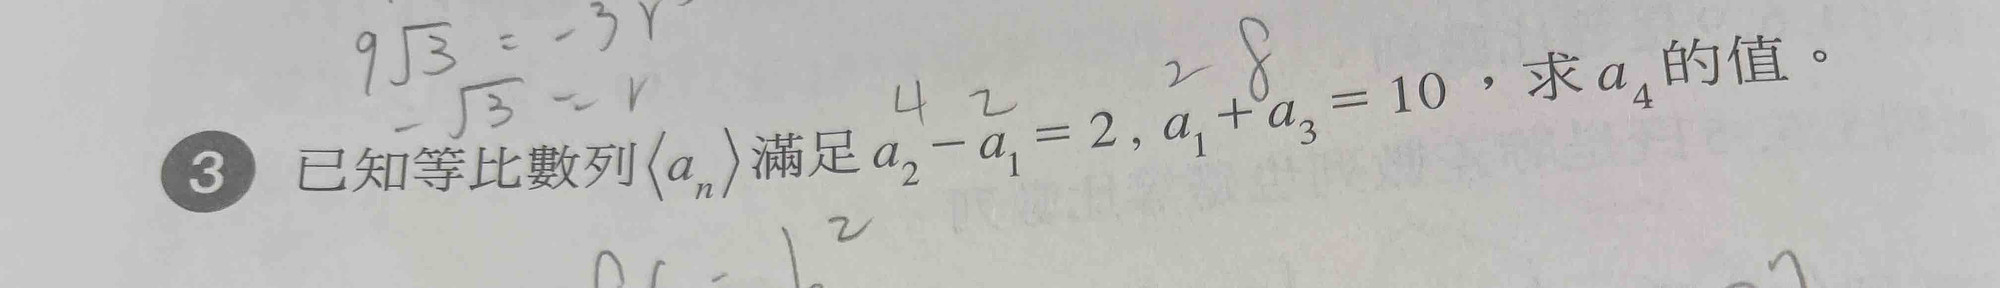 9√3 = -3r
-√3 = r
4 2 2 8
3 已知等比數列⟨aₙ⟩滿足 a₂ - a₁ = 2, a₁ + a₃ = 10，求 a₄ 的值。